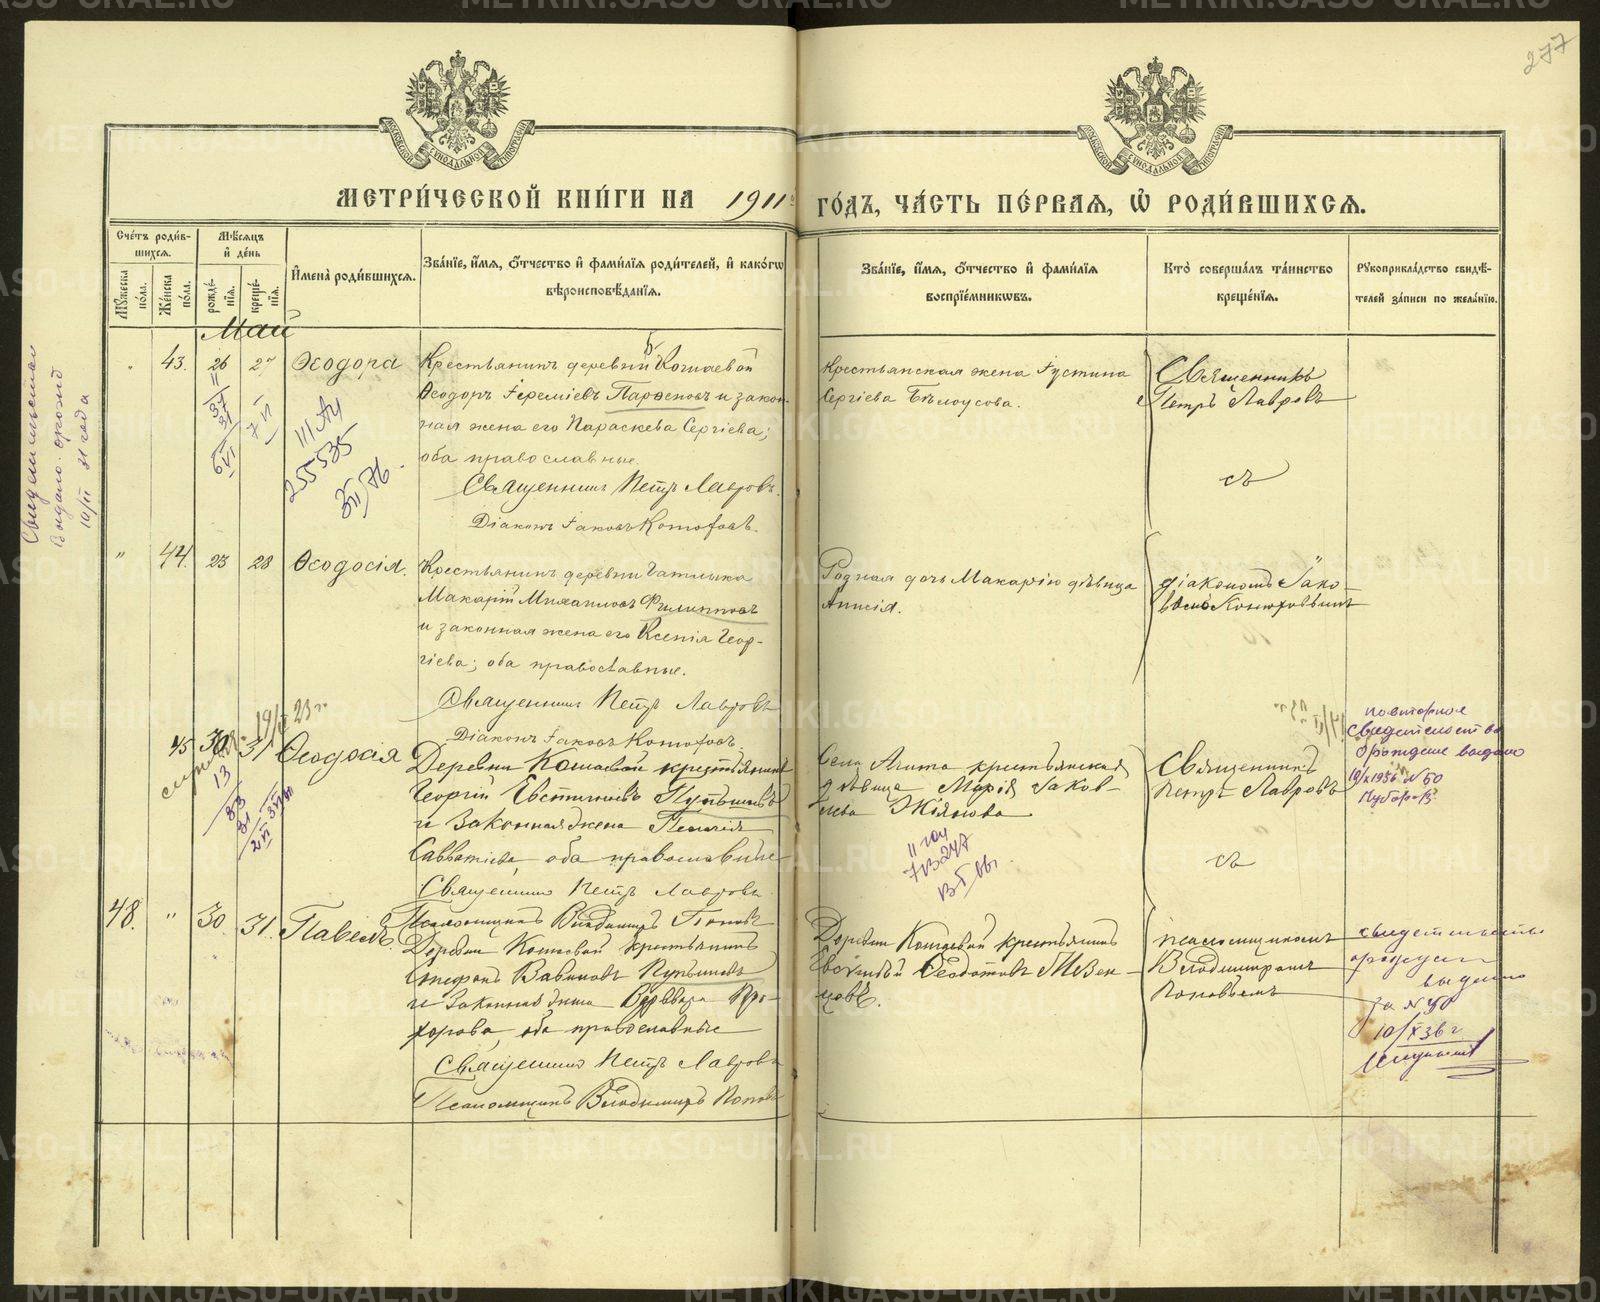 277
МЕТРИ́ЧЕСКОЙ КНИ́ГИ НА 1911 ГО́ДЪ, ЧА́СТЬ ПЕ́РВАЯ, Ѡ҆ РОДИ́ВШИХСЯ.
Сче́тъ роди́в-
шихся.
Мꙋ́жеска по́ла.
Же́нска по́ла.
Мѣ́сяцъ
и҆ де́нь
рожде́-
нїя.
креще́-
нїя.
И҆мена̀ роди́вшихся.
Зва́нїе, и҆́мя, ѻ҆́тчество и҆ фами́лїя роди́телей, и҆ како́гѡ
вѣроисповѣ́данїя.
Зва́нїе, и҆́мя, ѻ҆́тчество и҆ фами́лїя
воспрїе́мникѡвъ.
Кто̀ соверша́лъ та́инство
креще́нїя.
Рꙋкоприкла́дство свидѣ́-
телей за́писи по жела́нїю.
Май
43. 26 27 Ѳеодора
Крестьянинъ деревни Кошаевой
Ѳеодоръ Іереміевъ Парѳеновъ и закон-
ная жена его Параскева Сергіева;
оба православные.
Священникъ Петръ Лавровъ.
Діаконъ Іаковъ
Крестьянская жена Іустина
Сергіева Бѣлоусова.
Священникъ
Петръ Лавровъ
съ
255535
" 44. 23 28 Ѳеодосія.
Крестьянинъ деревни
Макарій Михаиловъ Филипповъ
и законная жена его Ксенія Геор-
гіева; оба православные.
Священникъ Петръ Лавровъ
Діаконъ Іаковъ
Родная дочь Макарію дѣвица
Анисія.
діакономъ Іако-
вомъ
45 30 31 Ѳеодосія
Деревни Кошаевой крестьянинъ
Георгій Евстигніевъ Пупышевъ
и законная жена Пелагія
Савватіева, оба православные
Священникъ Петръ Лавровъ
Псаломщикъ Владимиръ Поповъ
Села Ачита крестьянская
дѣвица Марія Іаков-
лева
Священникъ
Петръ Лавровъ
съ
повторное
Свидетельство
о рождение выдано
10/X 1936 № 50
48. " 30 31. Павелъ
Деревни Кошаевой крестьянинъ
Стефанъ Вавиловъ Пупышевъ
и законная жена Варвара Про-
хорова, оба православные
Священникъ Петръ Лавровъ
Псаломщикъ Владимиръ Поповъ
Деревни Кошаевой крестьянинъ
Ѳеодотовъ Мезен-
цовъ.
псаломщикомъ
Владимиромъ
Поповымъ
свидетельство
выдано
за № 40
10/X 36 г
Свидетельство
Выдано о рожд
10/II 31 года
METRIKI.GASO-URAL.RU